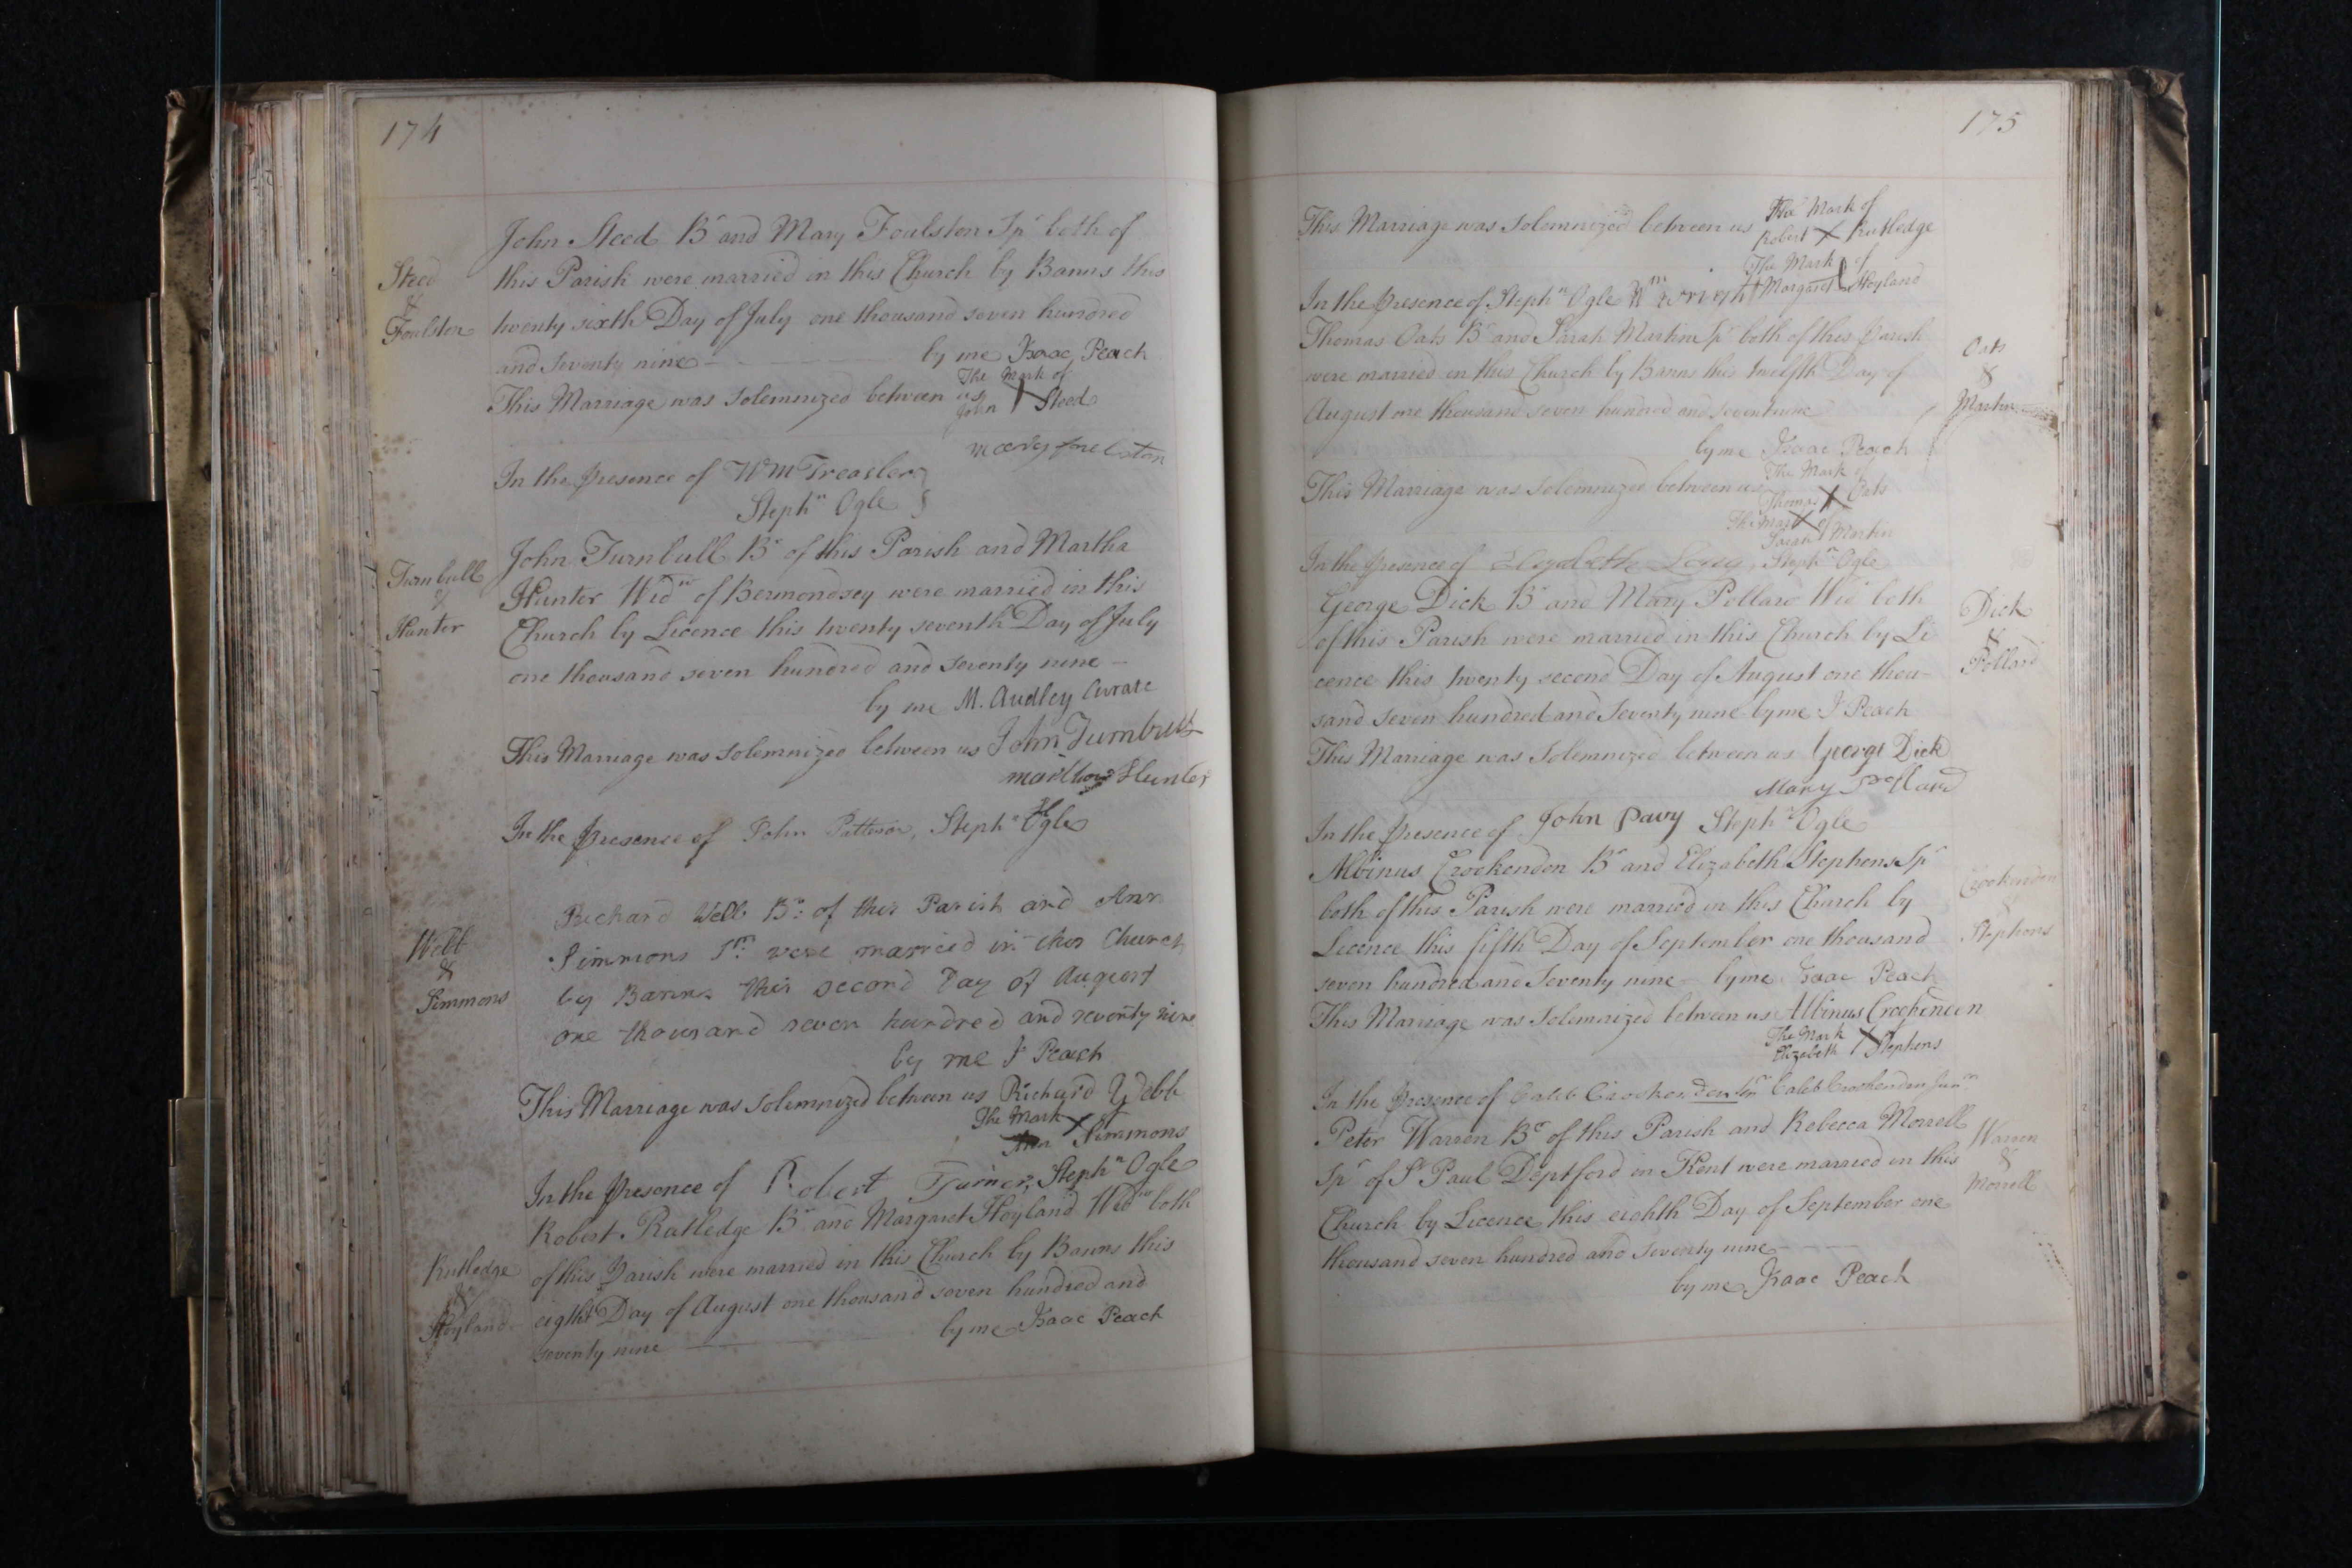 174
John Steed Br and Mary Foulston Spr both of
Steed
&
Foulston
this Parish were married in this Church by Banns this
twenty sixth Day of July one thousand seven hundred
and seventy nine — by me Isaac Peach
This Marriage was solemnized between us The Mark of
John X Steed
mary foulston
In the presence of Wm Treasler
Stephn Ogle
Turnbull
&
Hunter
John Turnbull Br of this Parish and Martha
Hunter Widw of Bermondsey were married in this
Church by Licence this twenty seventh Day of July
one thousand seven hundred and seventy nine —
by me M. Audley Curate
This Marriage was solemnized between us John Turnbull
martha Hunter
In the presence of John Pattison, Stephn Ogle
Webb
&
Simmons
Richard Webb Br: of this Parish and Ann
Simmons Sr: were married in this Church
by Banns this second Day of August
one thousand seven hundred and seventy nine
by me I Peach
This Marriage was solemnized between us Richard Webb
The Mark X of
Ann Simmons
In the presence of Robert Turner, Stephn Ogle
Rutledge
&
Hoyland
Robert Rutledge Br and Margaret Hoyland Widw both
of this Parish were married in this Church by Banns this
eight Day of August one thousand seven hundred and
seventy nine — by me Isaac Peach
175
This Marriage was solemnized between us The Mark of
Robert X Rutledge
The Mark of
Margaret Hoyland
In the presence of Stephn Ogle Wm Wright
Oats
&
Martin
Thomas Oats Br and Sarah Martin Spr both of this Parish
were married in this Church by Banns this twelfth Day of
August one thousand seven hundred and seventynine
by me Isaac Peach
This Marriage was solemnized between us The Mark of
Thomas X Oats
The Mark X of
Sarah Martin
In the presence of Elizabeth Stephn Ogle
Dick
&
Pollard
George Dick Br and Mary Pollard Wid both
of this Parish were married in this Church by Li
cence this twenty second Day of August one thou-
sand seven hundred and seventy nine by me I Peach
This Marriage was solemnized between us George Dick
Mary Pollard
In the presence of John Pavy Stephn Ogle
Crookendon
&
Stephens
Albinus Crookendon Br and Elizabeth Stephens Spr
both of this Parish were married in this Church by
Licence this fifth Day of September one thousand
seven hundred and Seventy nine — by me Isaac Peach
This Marriage was solemnized between us Albinus Crookenden
The Mark X of
Elizabeth Stephens
In the presence of Caleb Crookenden Senr Caleb Crookenden Junr
Warren
&
Morrell
Peter Warren Br of this Parish and Rebecca Morrell
Spr of St Paul Deptford in Kent were married in this
Church by Licence this eighth Day of September one
thousand seven hundred and seventy nine —
by me Isaac Peach